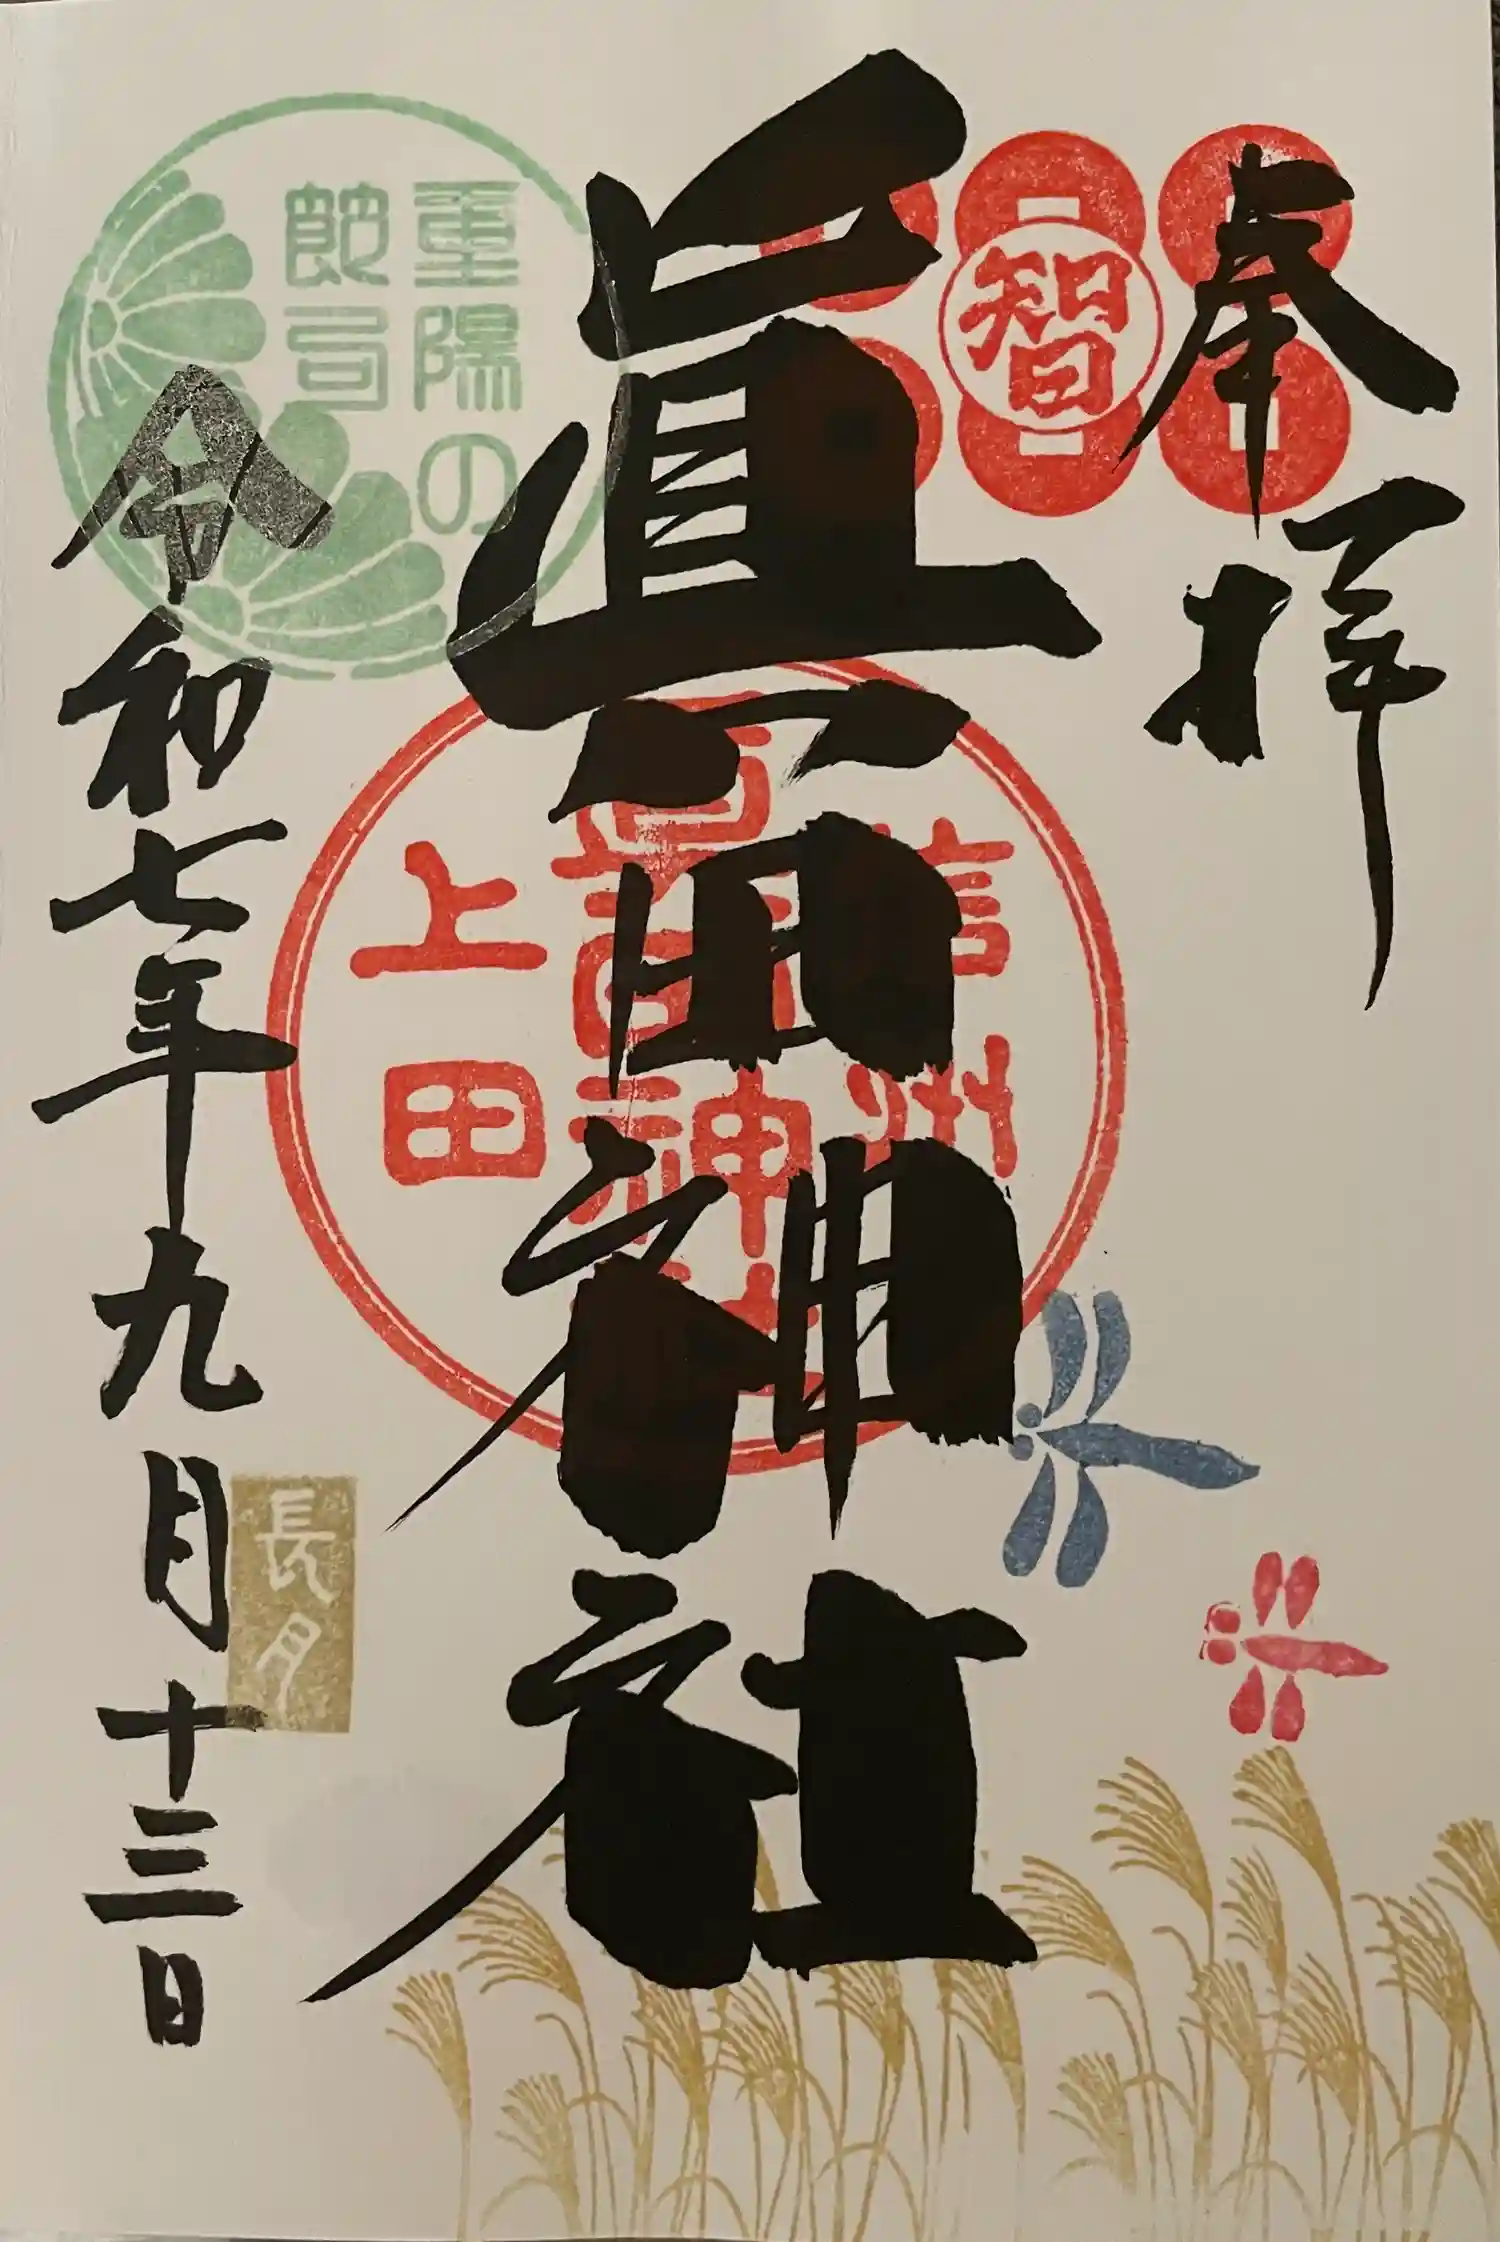 奉拝
智
眞田神社
信州
眞田神社
上田
重陽の
節句
長月
令和七年九月十三日